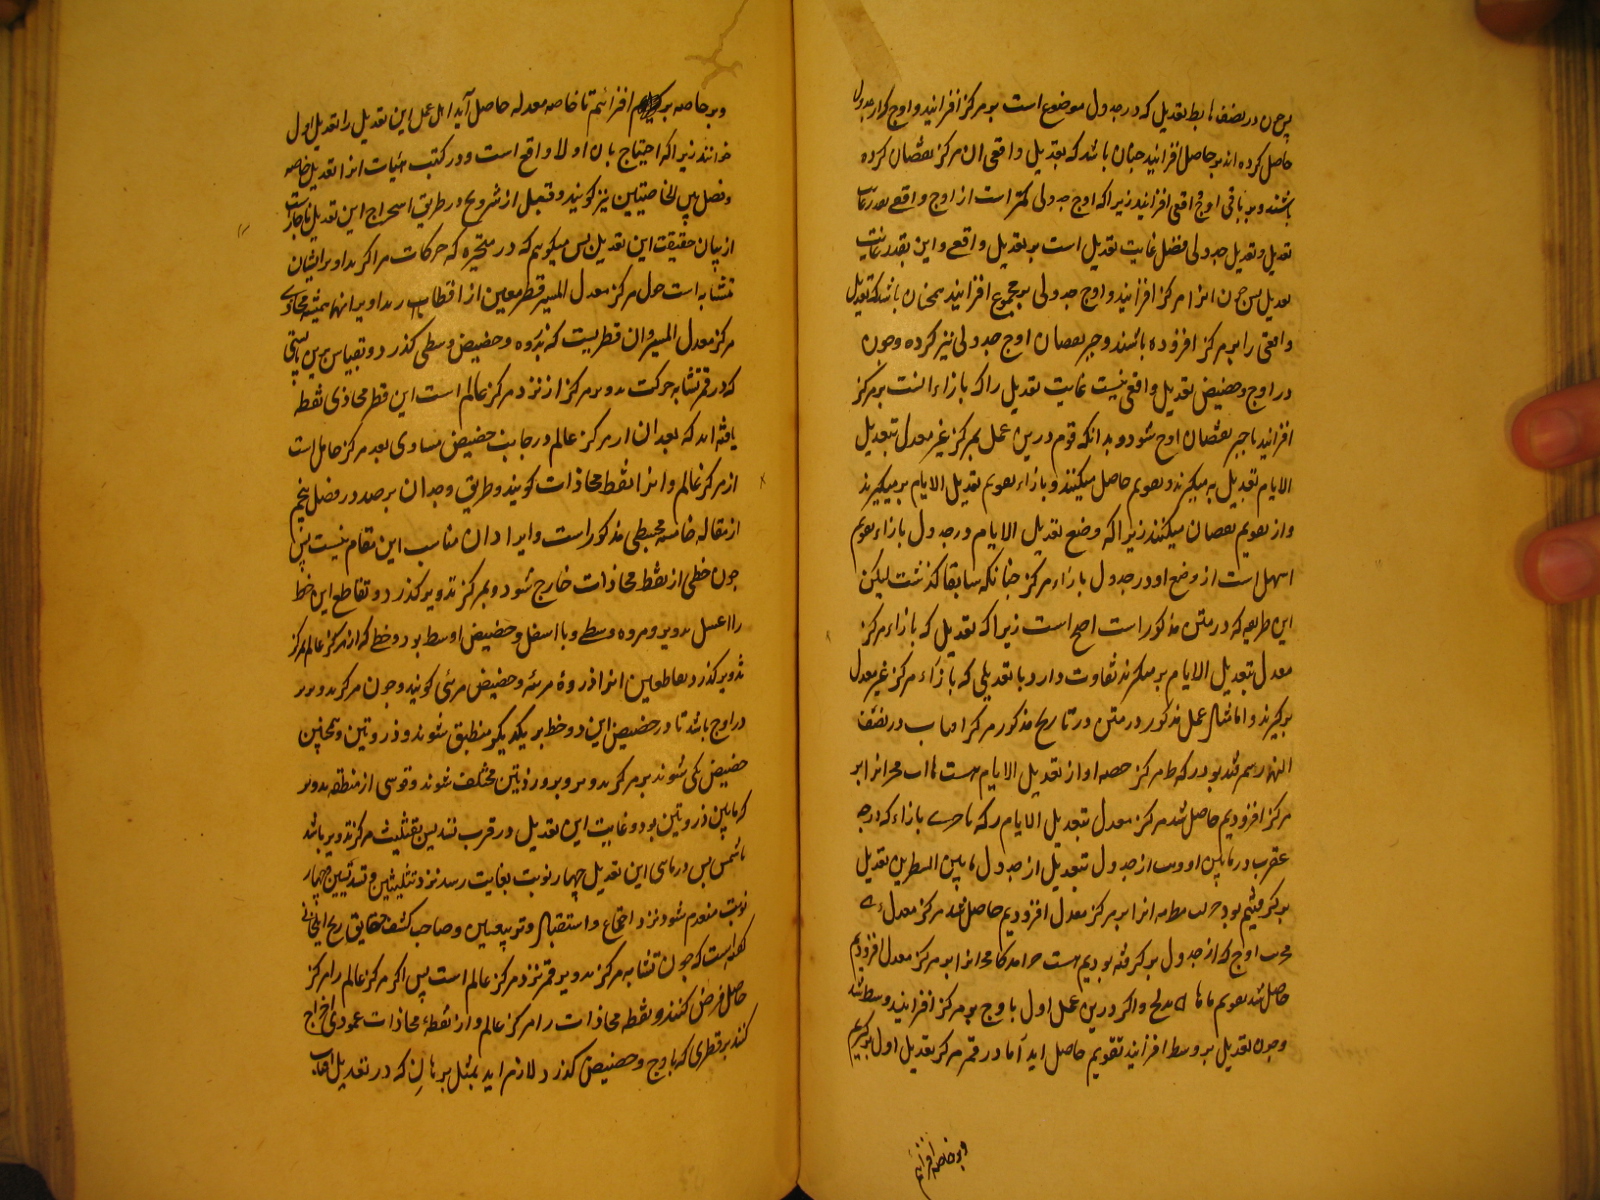 پس چون در نصف هابط تعدیل که در جدول موضوع است بر مرکز افزایند و اوج که از جدول
حاصل کرده اند بر حاصل افزایند چنان باشد که تعدیل واقعی از مرکز نقصان کرده
باشند و بر باقی اوج واقعی افزایند زیرا که اوج جدولی کمتر است از اوج واقعی بقدر غایت
تعدیل و تعدیل جدولی فضل غایت تعدیل است بر تعدیل واقعی و این بقدر غایت
تعدیل پس چون انرا بر مرکز افزایند و اوج جدولی بر مجموع افزایند همچنان باشد که تعدیل
واقعی را بر مرکز افزوده باشند و جبر نقصان اوج جدولی نیز کرده و چون
در اوج و حضیض تعدیل واقعی نیست غایت تعدیل را که بازاء انست بر مرکز
افزایند تا جبر نقصان اوج شود و بدانکه قوم درین عمل بمرکز غیر معدل بتعدیل
الایام تعدیل برمیگیرند و تقویم حاصل میکنند و بازاء تقویم تعدیل الایام برمیگیرند
و از تقویم نقصان میکنند زیرا که وضع تعدیل الایام در جدول بازاء تقویم
اسهل است از وضع او در جدول بازاء مرکز چنانکه سابقا گذشت لیکن
این طریقه که در متن مذکور است اصح است زیرا که تعدیل که بازاء مرکز
معدل بتعدیل الایام برمیگیرند تفاوت دارد با تعدیلی که بازاء مرکز غیر معدل
برگیرند و اما مثال عمل مذکور در متن در تاریخ مذکور مرکز افتاب در نصف
النهار رسم شد بود حصه او از تعدیل الایام هست انرا بر
مرکز افزودیم حاصل شد مرکز معدل بتعدیل الایام بازاء که درجه
عقرب در مابین از جدول تعدیل از جدول مابین السطرین تعدیل
برگرفتیم بود انرا بر مرکز معدل افزودیم حاصل شد مرکز معدل
اوج که از جدول برگرفته بودیم هست انرا بر مرکز معدل افزودیم
حاصل شد تقویم و اگر درین عمل اول با اوج بر مرکز افزایند وسط شد
و چون تعدیل بر وسط افزایند تقویم حاصل اید اما در قمر مرکز تعدیل اول برگیریم
و بر خاصه افزائیم
و بر خاصه افزائیم تا خاصه معدله حاصل آید اهل عمل این تعدیل را تعدیل اول
خوانند زیرا که احتیاج بان اولا واقع است و در کتب هیات انرا تعدیل خاصه
و فضل بین الخاصتین نیز گویند و قبل از شروع در طریق استخراج این تعدیل ناچار است
از بیان حقیقت این تعدیل پس میگویم که در متحیره که حرکات مراکز تداویر ایشان
متشابه است حول مرکز معدل المسیر قطر معین از اقطار تداویر انها همیشه محاذی
مرکز معدل المسیر و ان قطریست که بذروه و حضیض وسطی گذرد و بقیاس برین بایستی
که در قمر تشابه حرکت تدویر مرکز از نزد مرکز عالم است این قطر محاذی نقطه
یافته اند که بعد ان از مرکز عالم در جانب حضیض مساوی بعد مرکز حامل است
از مرکز عالم و انرا نقطه محاذات گویند و طریق وجدان برصد در فصل پنجم
از مقاله خامسه مجسطی مذکور است و ایراد ان مناسب این مقام نیست پس
چون خطی از نقطه محاذات خارج شود و بمرکز تدویر گذرد و تقاطع این خط
را با اعلی تدویر ذروه وسطی و با اسفل حضیض اوسط بود و خطی که از مرکز عالم بمرکز
تدویر گذرد تقاطعین انرا ذروهٔ مرئیه و حضیض مرئی گویند و چون مرکز تدویر
در اوج باشد تا در حضیض این دو خط بر یکدیگر منطبق شوند و ذروتین و همچنین
حضیض یکی شوند مرکز تدویر و ذروتین مختلف شوند و قوسی از منطقه تدویر
که مابین ذروتین بود و غایت این تعدیل در قرب تسدیس و تثلیث مرکز تدویر باشد
با شمس پس در ماهی این تعدیل چهار نوبت بغایت رسد نزد تثلیثین و تسدیسین و چهار
نوبت منعدم شود نزد اجتماع و استقبال و تربیعین و صاحب کشف حقایق زیج ایلخانی
گفته است که چون تشابه مرکز تدویر قمر نزد مرکز عالم است پس اگر مرکز عالم را مرکز
حامل فرض کنند و نقطه محاذات را مرکز عالم و از نقطهٔ محاذات عمودی اخراج
کنند بر قطری که باوج و حضیض گذرد لازم اید بمثل برهان که در تعدیل افتاب